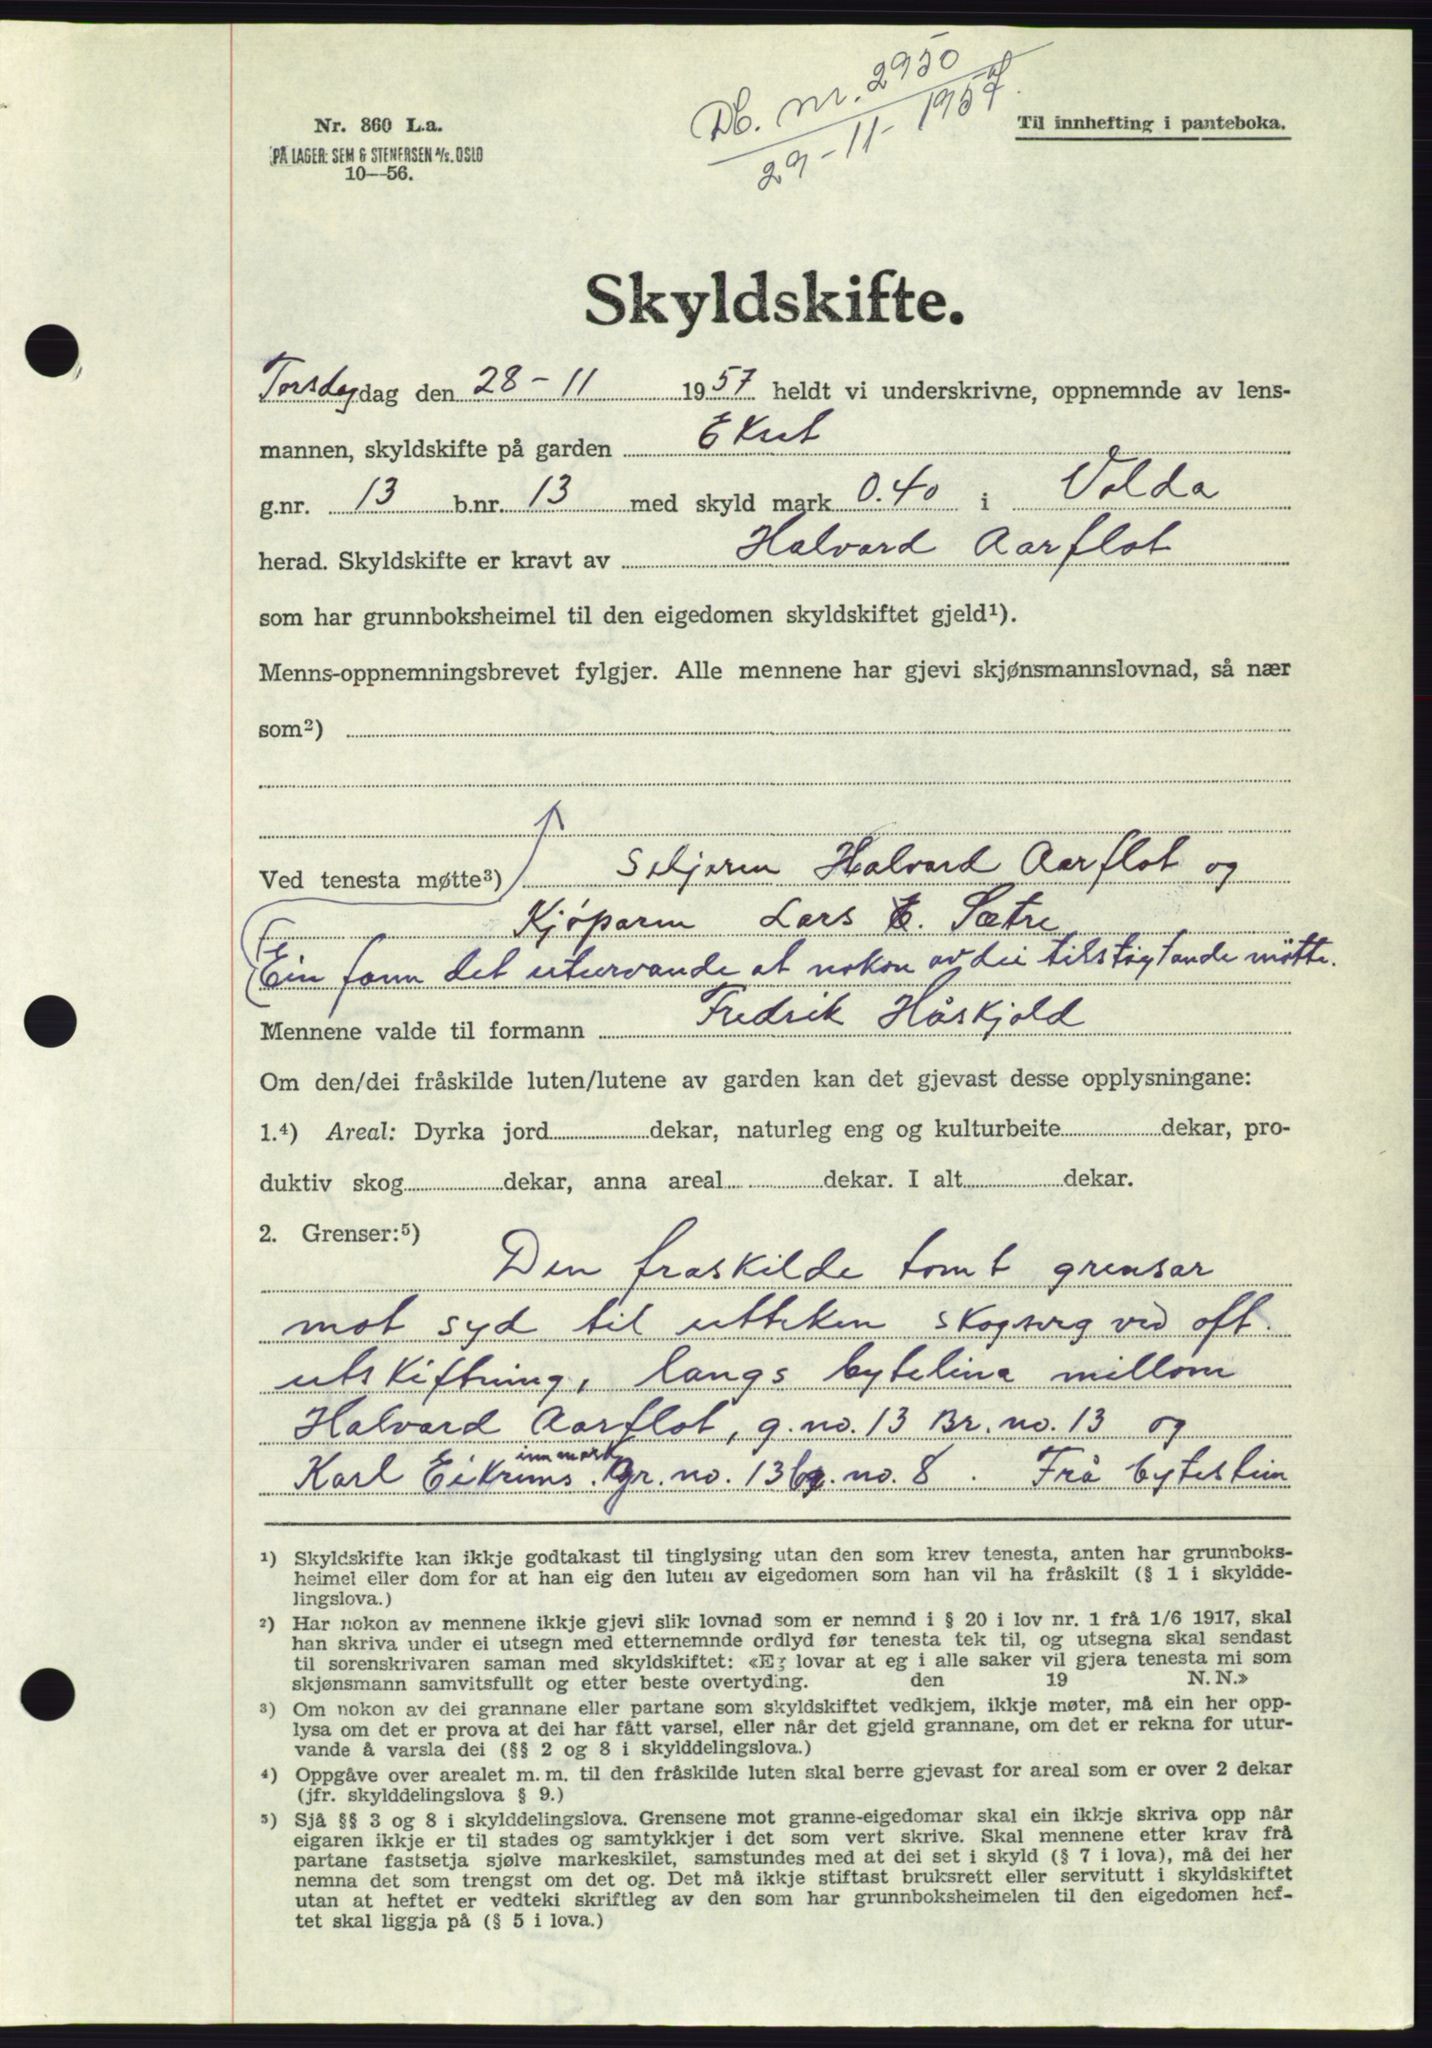 Db. nr. 2950
29-11-1957
Nr. 860 L.a.
PÅ LAGER: SEM & STENERSEN A/S. OSLO
10—56.
Til innhefting i panteboka.
Skyldskifte.
Torsdagdag den 28-11 1957 heldt vi underskrivne, oppnemnde av lens-
mannen, skyldskifte på garden
g.nr. 13 b.nr. 13 med skyld mark 0.40 i Volda
herad. Skyldskifte er kravt av Halvard Aarflot
som har grunnboksheimel til den eigedomen skyldskiftet gjeld¹).
Menns-oppnemningsbrevet fylgjer. Alle mennene har gjevi skjønsmannslovnad, så nær
som²)
Ved tenesta møtte³) Seljaren Halvard Aarflot og
Kjøparen Lars E. Sætre
Ein fann det uturvande at nokon av dei tilstøytande møtte.
Mennene valde til formann Fredrik Håskjold
Om den/dei fråskilde luten/lutene av garden kan det gjevast desse opplysningane:
1.⁴) Areal: Dyrka jord dekar, naturleg eng og kulturbeite dekar, pro-
duktiv skog dekar, anna areal dekar. I alt dekar.
2. Grenser:⁵)
Den fraskilde tomt grensar
mot syd til utteken skogveg ved oft.
utskiftning, langs bytelina millom
Halvard Aarflot, g.no. 13 Br.no. 13 og
innmark
Karl Eikrems gr.no. 13 br.no. 8. Frå bytestein
¹) Skyldskifte kan ikkje godtakast til tinglysing utan den som krev tenesta, anten har grunnboks-
heimel eller dom for at han eig den luten av eigedomen som han vil ha fråskilt (§ 1 i skyldde-
lingslova.)
²) Har nokon av mennene ikkje gjevi slik lovnad som er nemnd i § 20 i lov nr. 1 frå 1/6 1917, skal
han skriva under ei utsegn med etternemnde ordlyd før tenesta tek til, og utsegna skal sendast
til sorenskrivaren saman med skyldskiftet: «Eg lovar at eg i alle saker vil gjera tenesta mi som
skjønsmann samvitsfullt og etter beste overtyding. den 19 N. N.»
³) Om nokon av dei grannane eller partane som skyldskiftet vedkjem, ikkje møter, må ein her opp-
lysa om det er prova at dei har fått varsel, eller når det gjeld grannane, om det er rekna for utur-
vande å varsla dei (§§ 2 og 8 i skylddelingslova.)
⁴) Oppgåve over arealet m. m. til den fråskilde luten skal berre gjevast for areal som er over 2 dekar
(jfr. skylddelingslova § 9.)
⁵) Sjå §§ 3 og 8 i skylddelingslova. Grensene mot granne-eigedomar skal ein ikkje skriva opp når
eigaren ikkje er til stades og samtykkjer i det som vert skrive. Skal mennene etter krav frå
partane fastsetja sjølve markeskilet, samstundes med at dei set i skyld (§ 7 i lova), må dei her
nemna det som trengst om det og. Det må ikkje stiftast bruksrett eller servitutt i skyldskiftet
utan at heftet er vedteki skriftleg av den som har grunnboksheimelen til den eigedomen hef-
tet skal liggja på (§ 5 i lova.)